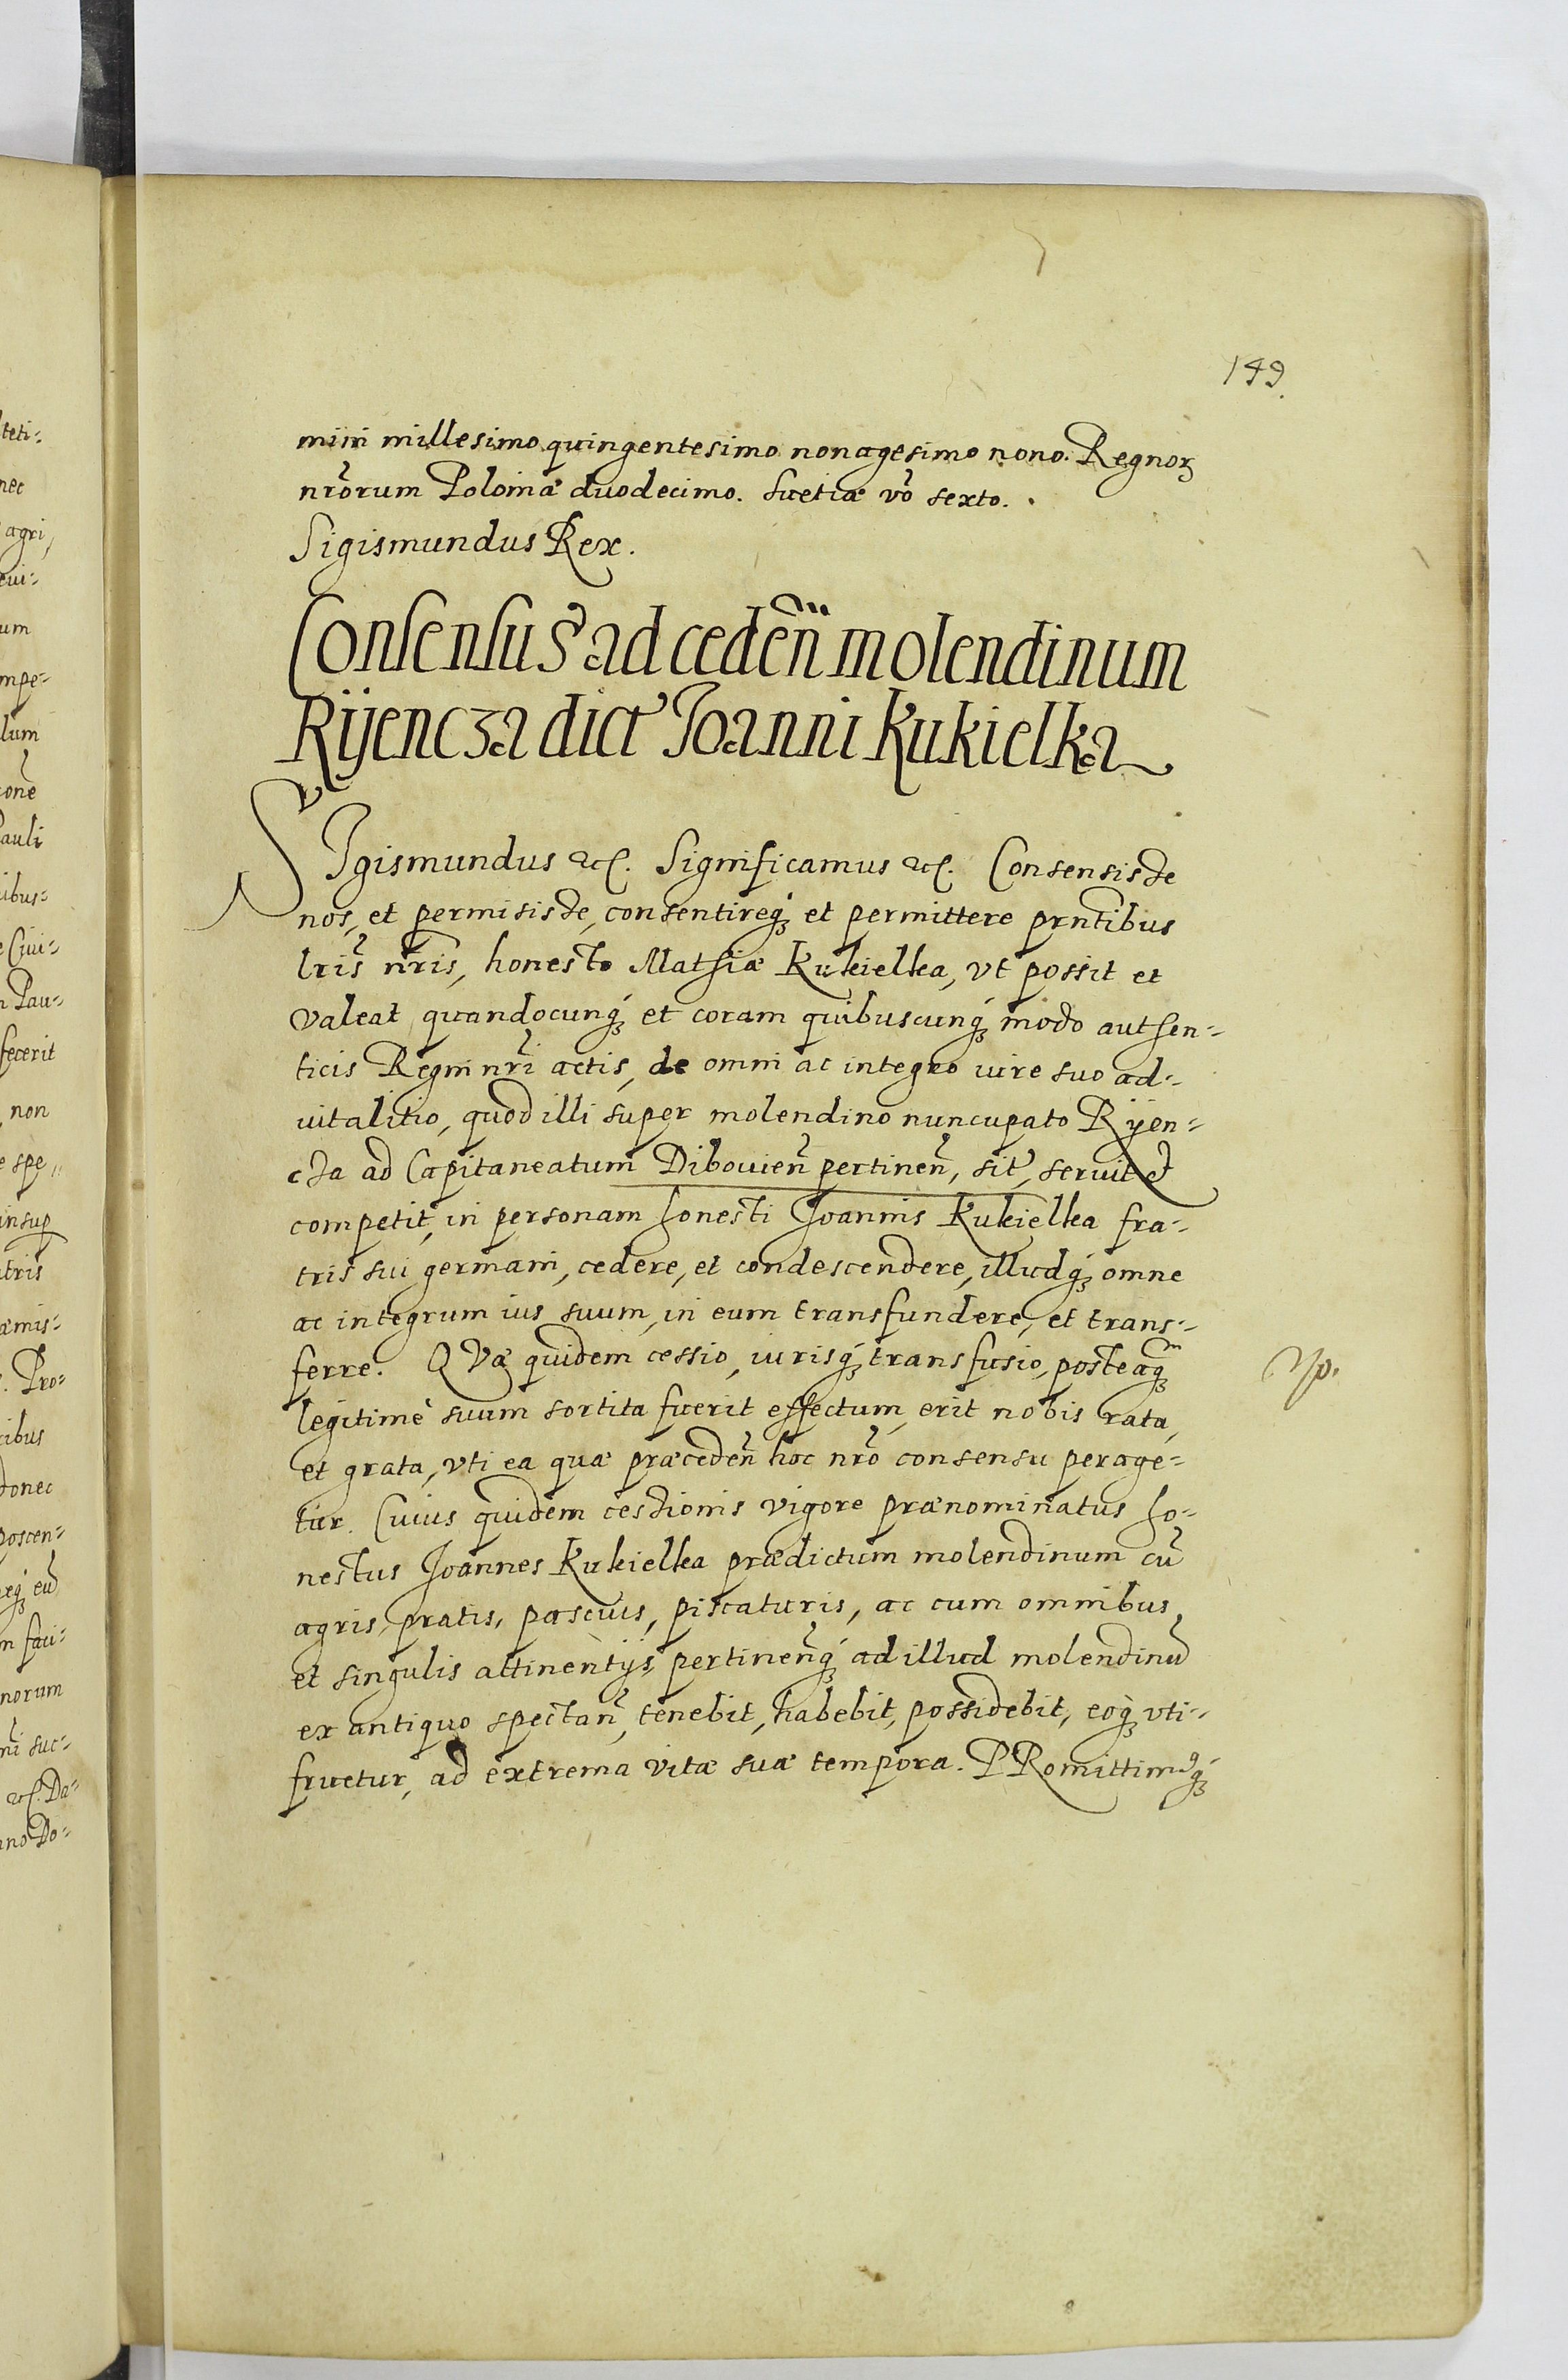 149.
mini millesimo quingentesimo nonagesimo nono. Regnoꝝ
nr̃orum Poloniæ duodecimo. Suetiæ võ sexto.
Sigismundus Rex.
Consensus ad ceden̄ molendinum
Rÿencza dict Joanni Kukielka
SIgismundus etc. Significamus etc. Consensisse
nos, et permisisse, consentireq́ꝫ et permittere prñtibus
lris̃ nr̃is, honesto Mathiæ Kukielka, vt possit et
valeat quandocunq́ꝫ et coram quibuscunq́ꝫ modo authen-
ticis Regni nr̃i actis, de omni ac integro iure suo ad-
vitalitio, quod illi super molendino nuncupato Rÿen-
cza ad Capitaneatum Dibouien̄ pertinen̄, sit, seruit et
competit, in personam honesti Joannis Kukielka fra-
tris sui germani, cedere, et condescendere, illudq́ꝫ omne
ac integrum ius suum, in eum transfundere, et trans-
ferre. QVæ quidem cessio, iurisq́ꝫ transfusio, posteaqꝫᵐ
legitimè suum sortita fuerit effectum, erit nobis rata,
et grata, vti ea quæ præceden̄ hoc nr̃o consensu perage-
tur. Cuius quidem cessionis vigore prænominatus ho-
nestus Joannes Kukielka prædictum molendinum cũ
agris, pratis, pascuis, piscaturis, ac cum omnibus
et singulis attinentijs, pertinen̄q́ꝫ ad illud molendinũ
ex antiquo spectan̄, tenebit, habebit, possidebit, eoq́ꝫ vti-
fruetur, ad extrema vitæ suæ tempora. PRomittimꝰq́ꝫ